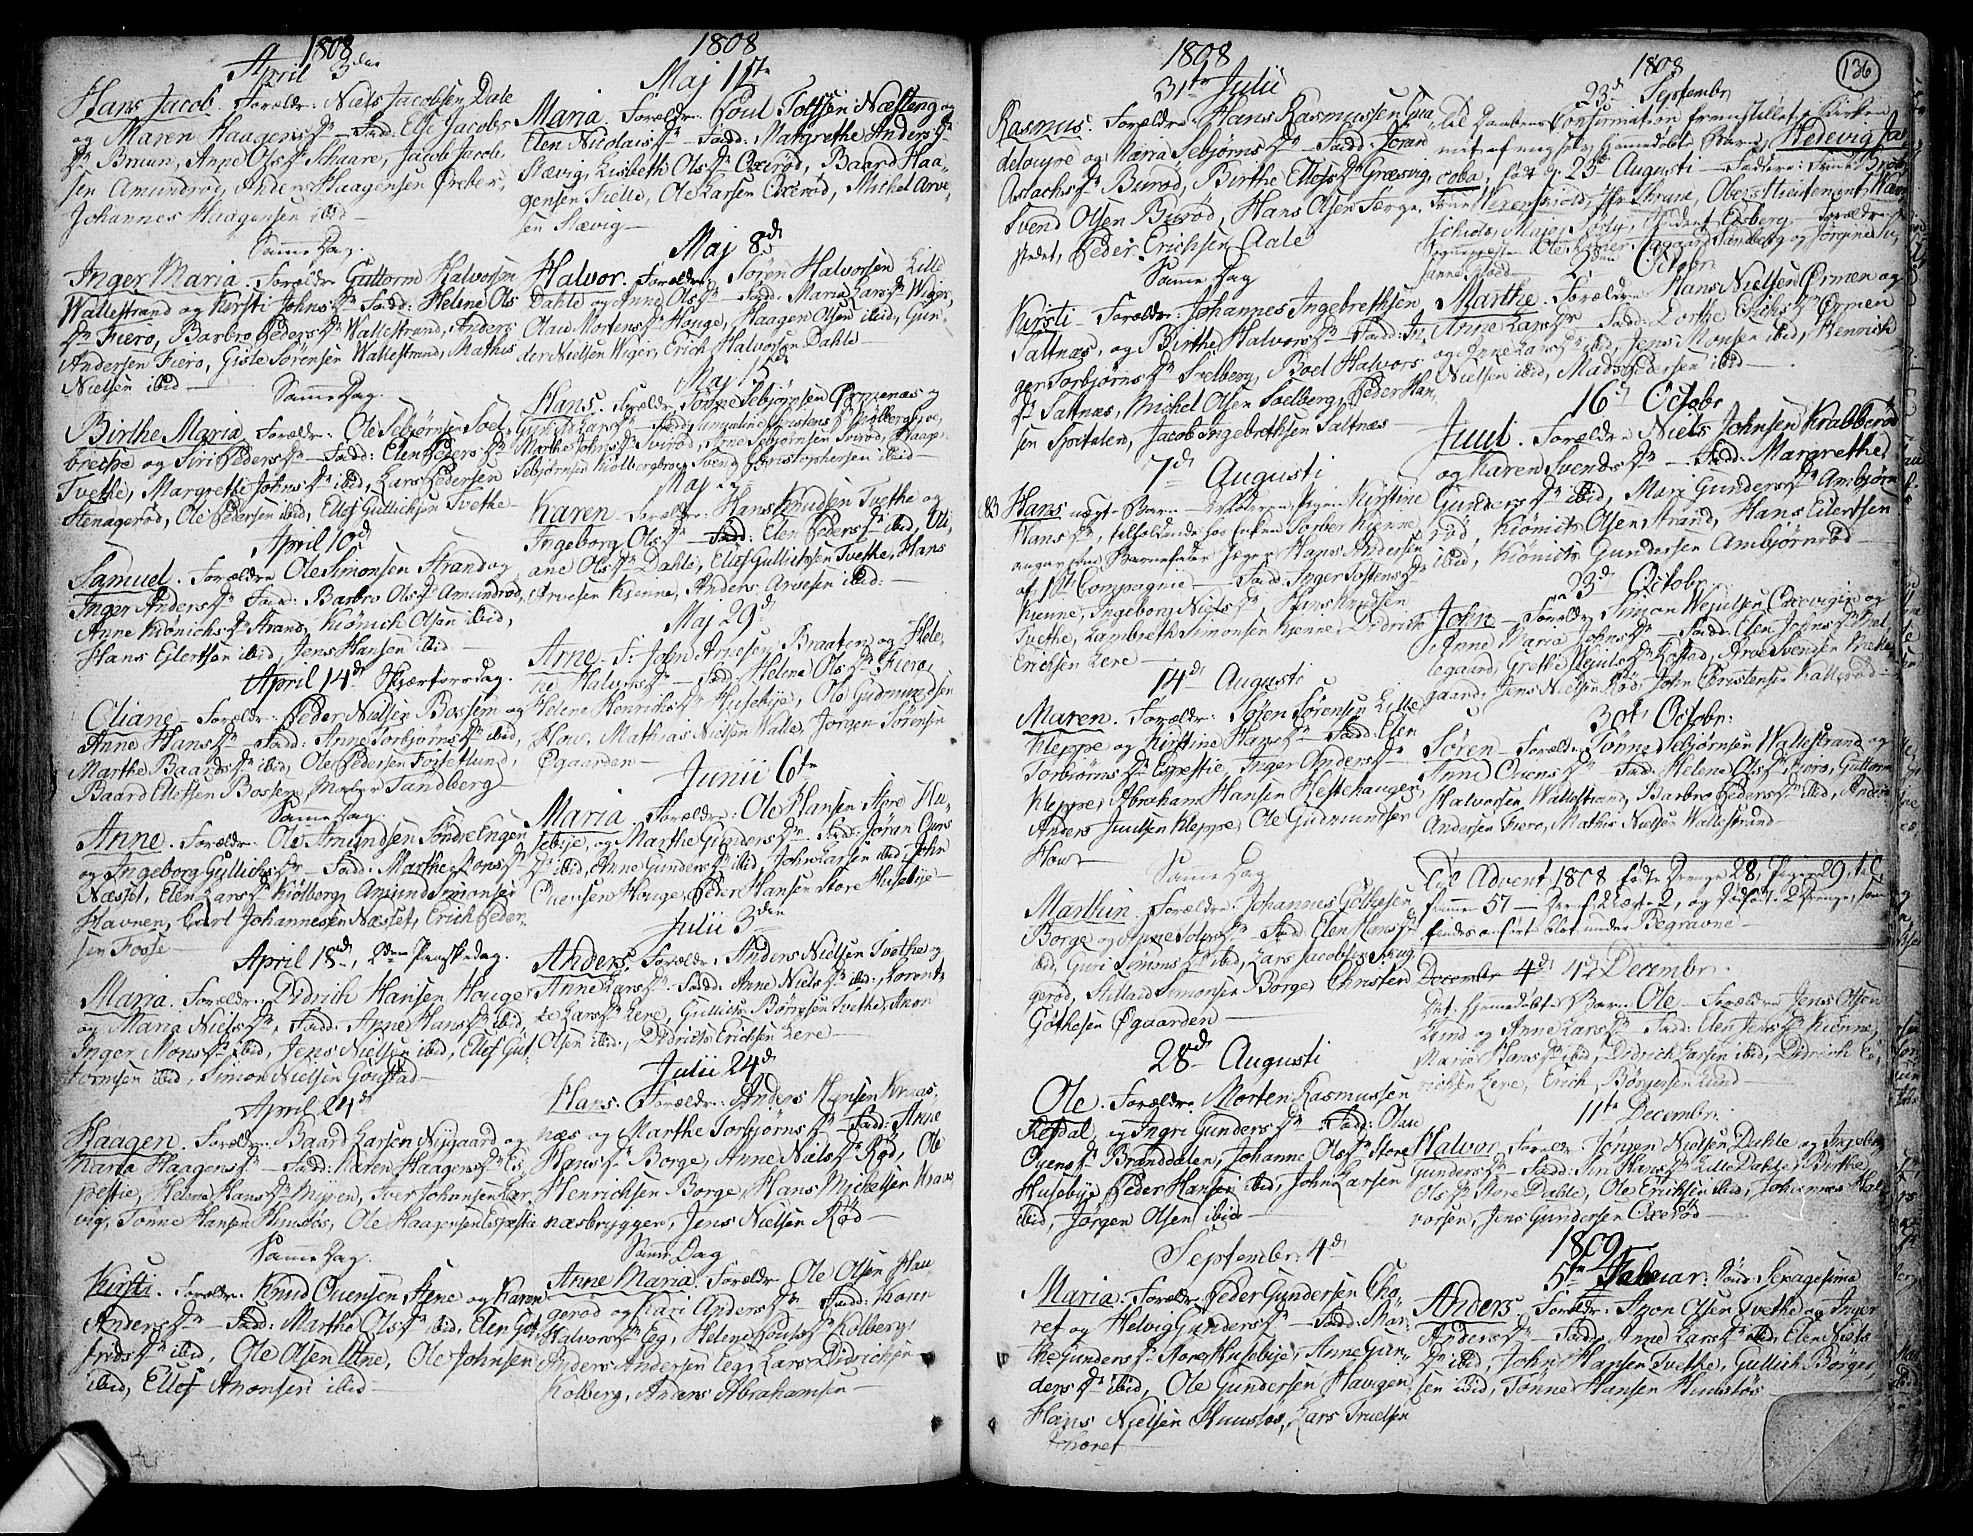 1808
April 3den
Hans Jacob. Forældr: Niels Jacobsen Dale
og Maren Haagens Dr — Fadd: Else Jacobs
Dr Bruun, Anne Ols Dr Skaare, Jacob Jacob
sen Amundrød, Anders Haagensen
Johannes Haagensen ibid —
Samme Dag.
Inger Maria. Forældr Guttorm Halvorsen
Wallestrand og Kirsti Johns Dr Fadd: Helene Ols
Dr Fiero, Barbro Peders Dr Wallestrand, Anders
Andersen Fiero, Gisle Sørensen Wallestrand, Mathis
Nielsen ibid —
Samme Dag.
Birthe Maria. Forældr: Ole Sebjørnsen Soel
og Siri Peders Dr — Fadd: Elen Peders Dr
Tvethe, Margrethe Johns Dr ibid, Lars Pedersen
Stenagerød, Ole Pedersen ibid, Ellef Gullichsen Tvethe —
April 10d
Samuel. Forældre Ole Simonsen Strand og
Inger Anders Dr Fadd: Barbro Ols Dr Amundrød,
Anne Kiönichs Dr Strand, Kiönich Olsen ibid,
Hans Eilertsen ibid, Jens Hansen ibid —
April 14d Skjærtorsdag.
Oliane — Forældr: Peder Nielsen Bossem og
Anne Hans Dr — Fadd: Anne Torbjørns Dr ibid,
Marthe Baards Dr ibid, Ole Pedersen Fossetlund,
Baard Ellefsen Bossem, Tandberg —
Samme Dag.
Anne. Forældr: Ole Amundsen Søndre Engen
og Ingeborg Gullichs Dr — Fadd: Marthe Dr
Næsset, Elen Lars Dr Kiölberg, Amund Simonsen
Havnen, Carl Johannesen Næsset, Erich Peder
sen Fosse —
April 18d, 2den Paaskedag.
Maria. Forældr: Didrich Hansen Houge
og Maria Niels Dr, Fadd: Anne Hans Dr ibid,
Inger Mons Dr ibid, Jens Nielsen ibid, Ellef Gut
tormsen ibid, Simon Nielsen —
April 24d
Haagen. Forældr: Baard Larsen Nygaard og
Maria Haagens Dr — Fadd: Karen Haagens Dr Es
pestie, Helene Hans Dr Myren, Iver Johansen Lar
vig, Tønne Hansen Humløs, Ole Haagensen Espestie
Samme Dag.
Kirsti. Forældr. Knud Ovensen Stene og Karen
Anders Dr — Fadd: Marthe Ols Dr ibid, Elen
Dr ibid, Ole Olsen Utne, Ole Johnsen
ibid, Ellef Amonsen ibid —
1808
Maj 1ste
Maria. Forældr. Poul Tolfsen Næsteng og
Elen Nicolais Dr — Fadd: Margrethe Anders Dr
Slævig, Lisbeth Ols Dr Oxerød, Baard Haa
gensen Fielle, Ole Larsen Oxerød, Michel Arve
sen Slævig —
Maj 8d
Halvor. Forældr. Søren Halvorsen Lille
Dahle og Anne Ols Dr — Fadd: Maria Lars Dr Wiger,
Olau Mortens Dr Houge, Haagen Olsen ibid, Gun
der Nielsen Wiger, Erich Halvorsen Dahle —
Maj 15d
Hans. Forældr. Tønne Sebjørnsen Ørmenæs og
Lars Dr — Fadd: Dr Kiölbergbroe,
Marthe Johns Dr Svirød, Tønne Sebjørnsen Svirød,
Sebjørnsen Kiölbergbroe, Svend Christophersen ibid —
Maj
Karen. Forældr: Hans Knudsen Tvethe og
Ingeborg Ols Dr — Fadd: Elen Peders Dr ibid, Oli
ane Ols Dr Dahle, Ellef Gullichsen Tvethe, Hans
Arvesen Kjenne, Anders Arvesen ibid: —
Maj 29d
Arne. F: John Arnesen Braaten og Hele
ne Halvors Dr — Fadd: Helene Ols Dr Fiero,
Helene Henrichs Dr Husebye, Ole Gudmundsen
How, Mathias Nielsen Walle, Jørgen Sørensen
Øgaarden —
Junii 6te
Maria. Forældr: Ole Hansen Store Hu
sebye, og Marthe Gunders Dr — Fadd: Jøran Ouens
Dr ibid, Anne Gunders Dr ibid, John Larsen ibid, John
Ovensen Houge, Peder Hansen Store Husebye —
Julii 3den
Anders. Forældr: Anders Nielsen Tvethe og
Anne Lars Dr Fadd: Anne Niels Dr ibid, Dorent
he Lars Dr Lere, Gullich Børgersen Tvethe, Anon
Olsen ibid, Didrich Erichsen Lere —
Julii 24d
Hans. Forældr: Anders Hansen Kraas
næs og Marthe Torbjørns Dr — Fadd: Anne
Hans Dr Borge, Anne Niels Dr Rød, Ole
Henrichsen Borge, Hans Michelsen Kraas
næsbryggen, Jens Nielsen Rød —
Samme Dag
Anne Maria. Forældr Ole Olsen Hau
gerød og Kari Anders Dr — Fadd: Karen
Halvors Dr Eeg, Helene Pouls Dr Kolberg,
Anders Andersen Eeg, Lars Didrichsen
Kolberg, Anders Abrahamsen —
1808
31te Julii
Rasmus. Forældre Hans Rasmussen Gua
deløyre og Maria Sebjørns Dr — Fadd: Jøran
Aslachs Dr Burød, Birthe Ellefs Dr Græsvig,
Svend Olsen Burød, Hans Olsen Færge
stedet, Peder Erichsen Aale
Samme Dag
Kirsti — Forældr: Johannes Ingebrethsen
Saltnæs, og Birthe Halvors Dr — Fadd: In
ger Torbjørns Dr Soelberg, Boel Halvors
Dr Saltnæs, Michel Olsen Soelberg, Peder Han
sen Spetalen, Jacob Ingebrethsen Saltnæs —
7d Augusti
Hans uægte Barn — Moderen Pigen Kirstine
Hans Dr, tilholdende hos Enken Kjenne,
angiven Barnefader Jæger Hans Andersen
af 1ste Compagnie — Fadd: Inger Tostens Dr
Kienne, Ingeborg Niels Dr, Hans Knudsen
Tvethe, Lambreth Simonsen Kjenne, Didrich
Erichsen Lere —
14d Augusti
Maren. Forældr: Søren Sørensen Lille
Kleppe og Kirstine Hans Dr — Fadd: Elen
Torbiörns Dr Espestie, Inger Anders Dr
Kleppe, Abraham Hansen Hestehaugen,
Anders Juulsen Kleppe, Ole Gudmundsen
How —
Samme Dag
Marthin. Forældre: Johannes Göthesen
Borge og Anne Dr — Fadd Elen Hans Dr
ibid, Guri Simons Dr ibid, Lars Jacobsen Haug
gerød, Simonsen Borge, Christen
Göthesen Øgaarden —
28d Augusti
Ole. Forældre. Morten Rasmussen
Refdal og Ingri Gunders Dr — Fadd: Olau
Ovens Dr Branddalen, Johanne Ols Dr Store
Husebye, Peder Hansen ibid, John Larsen
ibid, Jørgen Olsen ibid —
Septembr: 4d
Maria. Forældr: Peder Gundersen Tho
ret og Helvig Gunders Dr — Fadd: Mar
the Gunders Dr Store Husebye, Anne Gun
ders Dr ibid, Ole Gundersen Havigen,
Hans Nielsen Humløs, Lars Truelsen
Thoret —
1808
136
23d Septembr
Til Daabens Confirmation fremstillet i Kirken
Hiemedøbte Barn, Hedevig Ja
coba, født d: 23d Augusti — Faddere:
Frue Werenskiold, Hr Thrane, Oberstlieutenant Wæren
schiold, Major Sibly, Student Edsberg. Forældre
Sogneprest Ole Aagaard Sandberg og Jørgine Su
sanne
2den Octobr
Marthe. Forældre Hans Nielsen Ørmen og
Anne Lars Dr — Fadd: Dorthe Erichs Dr Ørmen
og Anne Lars Dr ibid, Jens Monsen ibid, Henrich
Nielsen ibid, Mads Pedersen ibid —
16d Octobr
Juul. Forældre Niels Johnsen Krabberød
og Karen Svends Dr — Fadd: Margrethe
Gunders Dr ibid, Mari Gunders Dr Ambjørn
rød, Kiönich Olsen Strand, Hans Eilertsen
ibid, Kiönich Gundersen Ambjørnrød —
23d Octobr
John — Forældr. Simon Wejulsen Oxevigen og
Anne Maria Johns Dr — Fadd: Elen Johns Dr
egaard, Grethe Wejuls Dr Lofstad, Arve Svendsen
gaard, Jens Nielsen Rød, John Christensen Katterød —
30te Octobr:
Søren — Forældr: Tønne Sebjørnsen Wallestrand og
Anne Ouens Dr — Fadd: Helene Ols Dr Fiero, Guttorm
Halvorsen Wallestrand, Barbro Peders Dr ibid, Anders
Andersen Fiero, Mathis Nielsen Wallestrand —
Til Advent 1808 fødte Drenge 28, Piger 29, til
sammen 57 — Deraf uægte 2, og Dødfødt 2 Drenge, som
findes anført blot under Begravne —
December 4d 4d Decembr.
Det hjemmedøbte Barn Ole — Forældre Jens Olsen
Lund og Anne Lars Dr — Fadd: Elen Jens Dr Kiönne,
Maria Hans Dr ibid, Didrich Larsen ibid, Didrich Er
richsen Lere, Erich Børgersen Lund —
11te Decembr:
Halvor. Forældr. Jørgen Nielsen Dahle og Ingeborg
Gunders Dr — Fadd: Siri Hans Dr Lille Dahle, Birthe
Ols Dr Store Dahle, Ole Erichsen ibid, Johannes Hal
vorsen, Jens Gundersen Oxerød —
1809
5te Februar: Sönd: Sexagesima
Anders. Forældr: Anon Olsen Tvethe og Inger
Anders Dr — Fadd: Anne Lars Dr ibid, Elen Niels
Dr ibid, John Hansen Tvethe, Gullich Børger
sen ibid, Tønne Hansen Humløs —